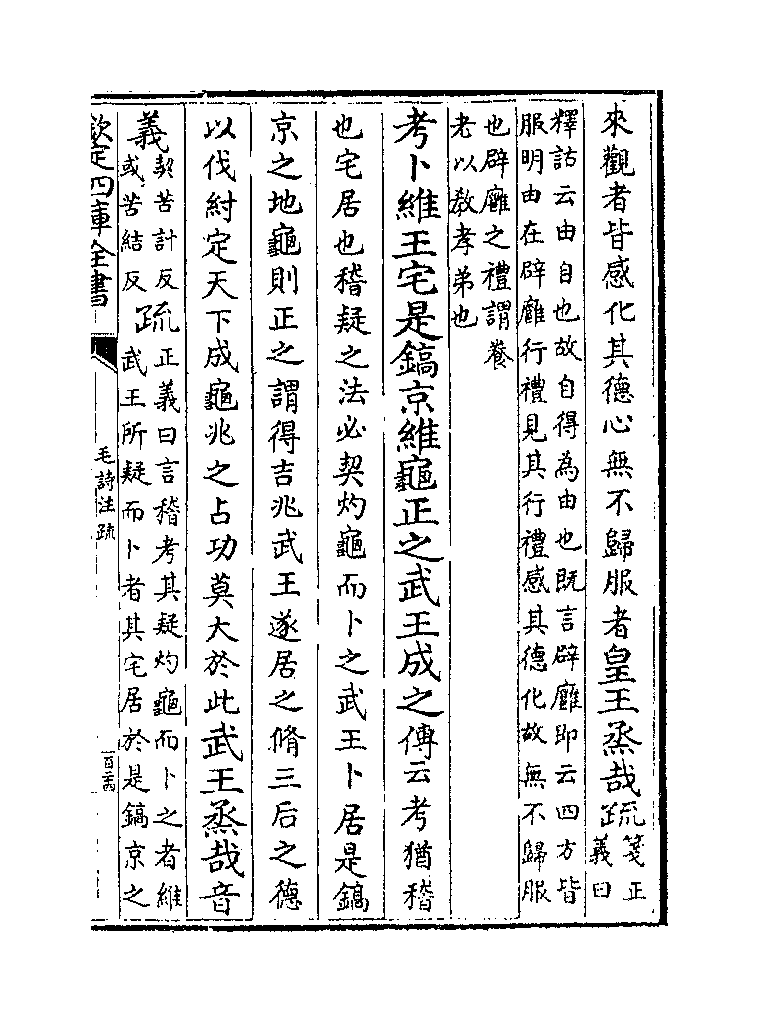 來觀者皆感化其德心無不歸服者皇王烝哉疏箋正
義曰
釋詁云由自也故自得為由也既言辟廱即云四方皆
服明由在辟廱行禮見其行禮感其德化故無不歸服
也辟廱之禮謂養
老以教孝弟也
考卜維王宅是鎬京維龜正之武王成之傳云考猶稽
也宅居也稽疑之法必契灼龜而卜之武王卜居是鎬
京之地龜則正之謂得吉兆武王遂居之脩三后之德
以伐紂定天下成龜兆之占功莫大於此武王烝哉音
義契苦計反
或苦結反
疏正義曰言稽考其疑灼龜而卜之者維
武王所疑而卜者其宅居於是鎬京之
欽定四庫全書
毛詩注疏
一百二十四